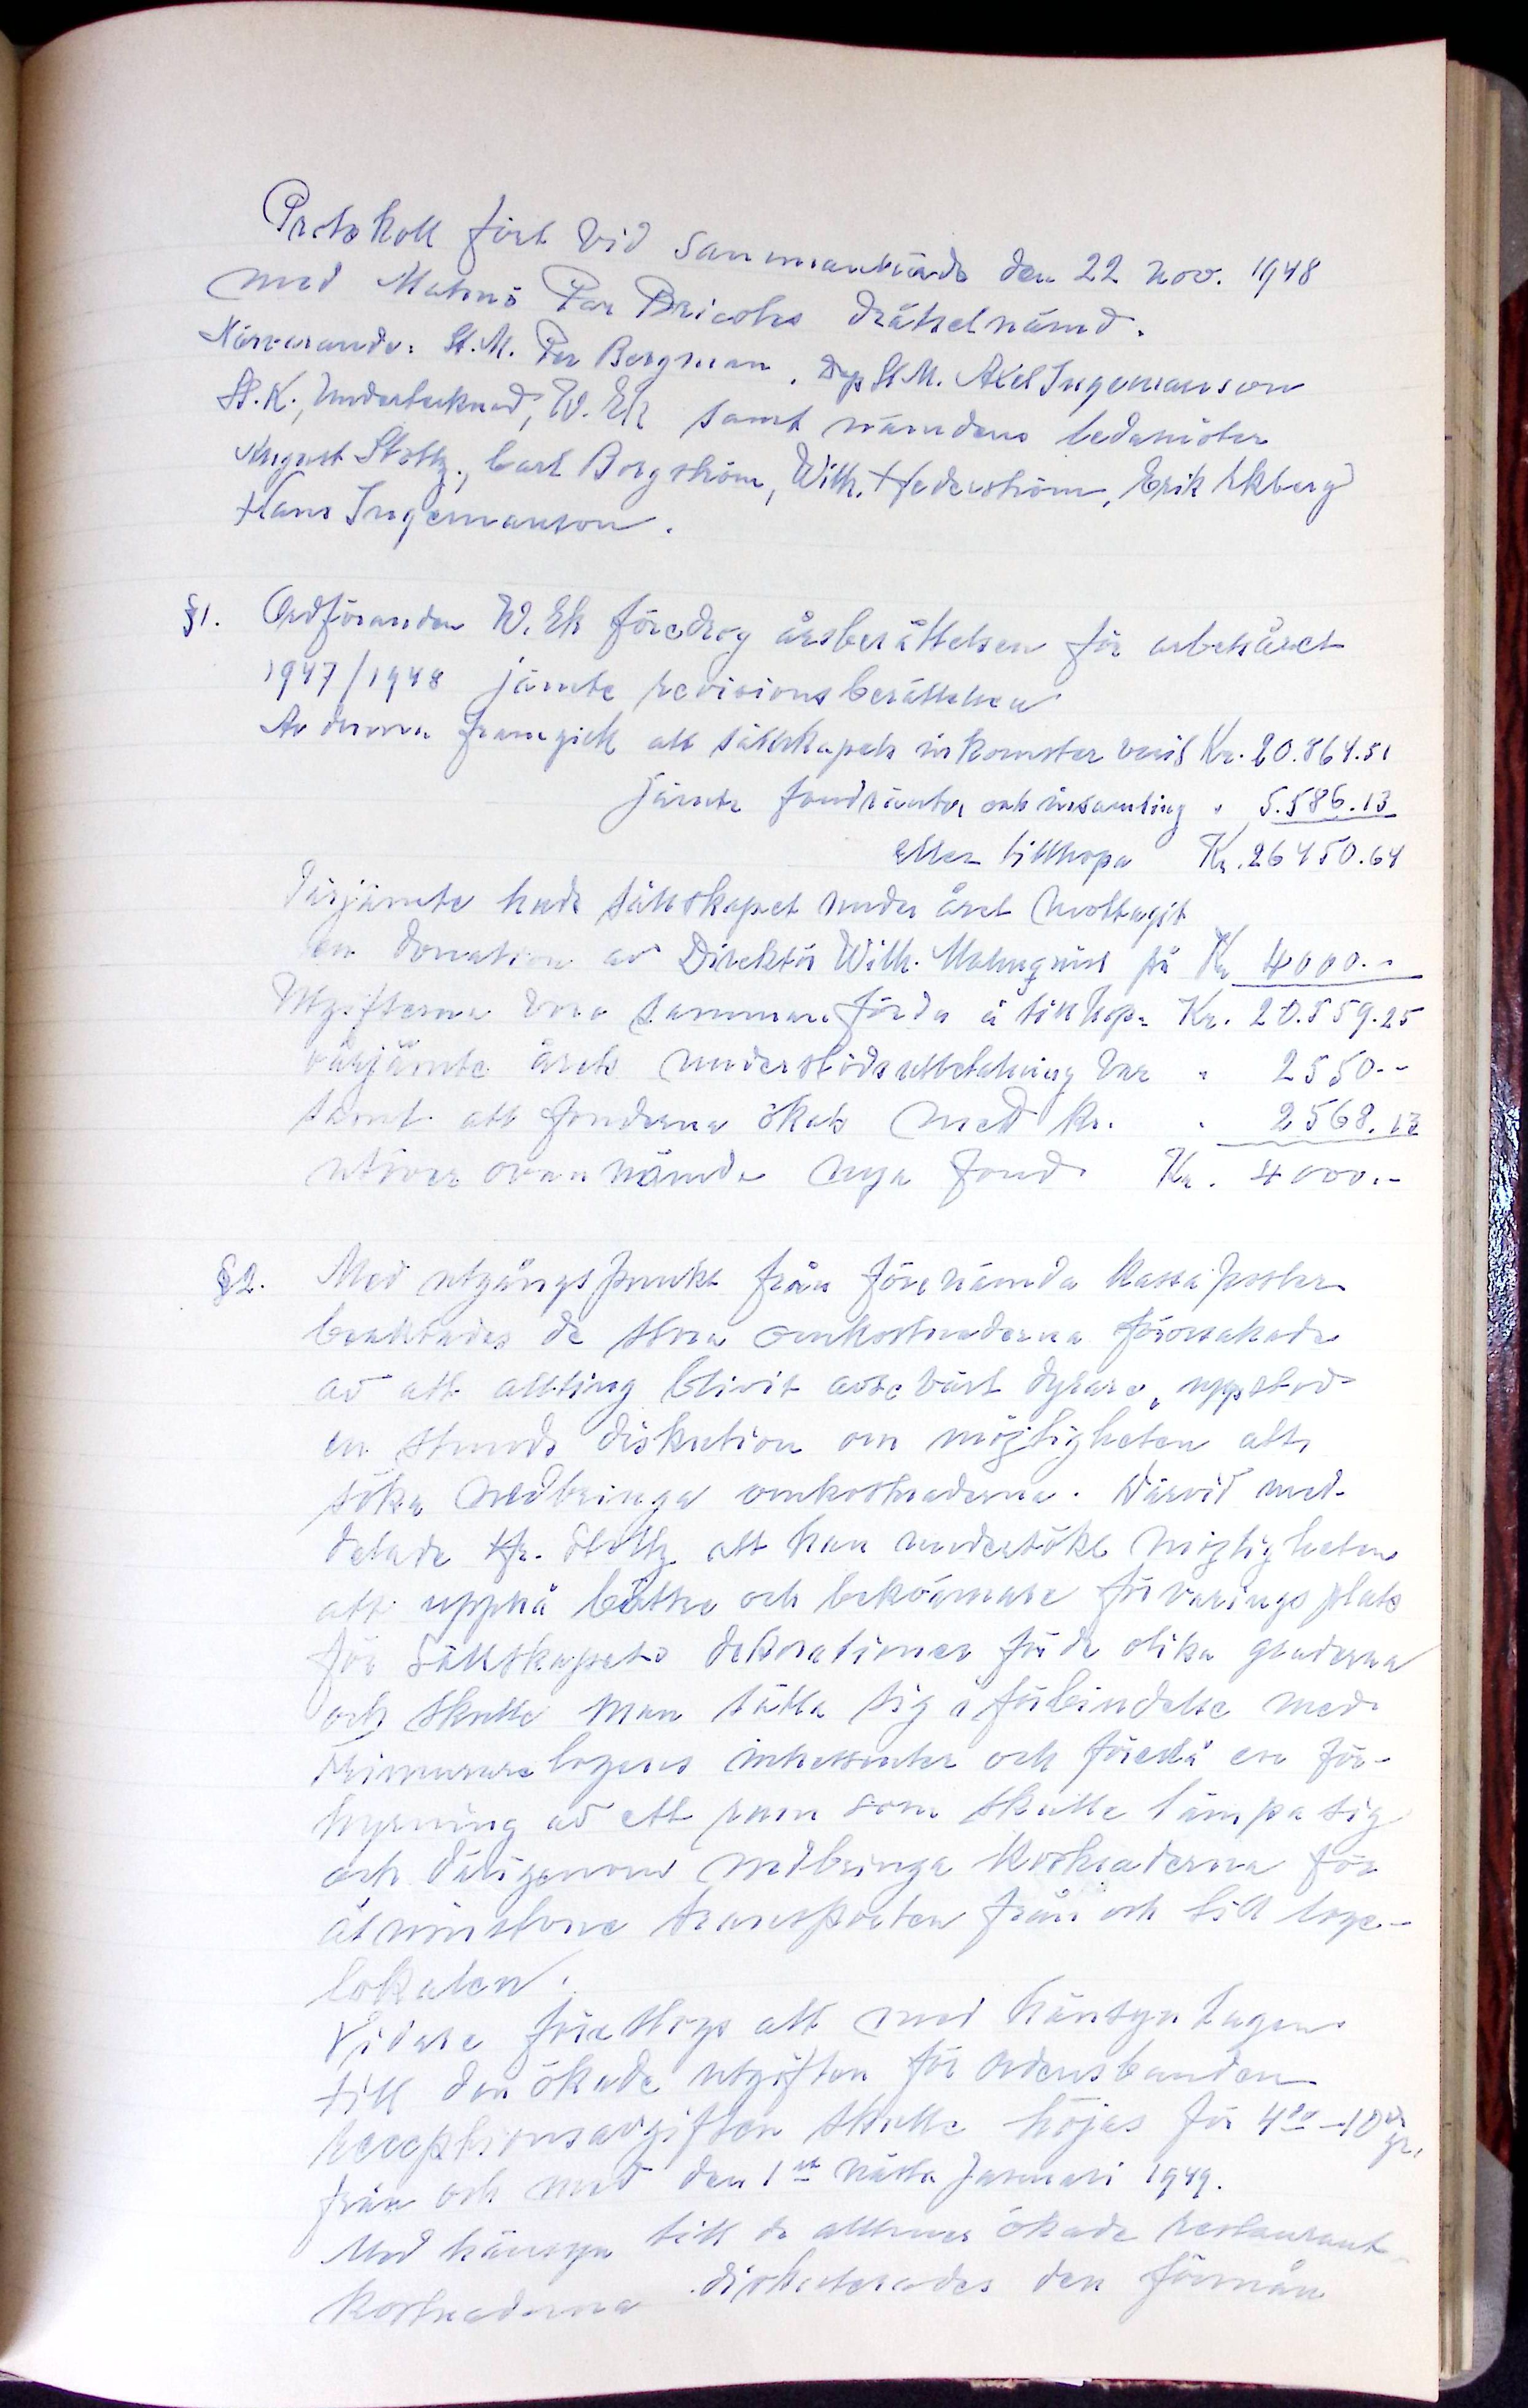 Protokoll fört vid sammanträde den 22 nov. 1948
med Malmö Par Bricoles drätselnämd.
Närvarande: St.M. Per Bergman, Dep St M. Axel Ingemanson
St.K., Undertecknad, W. Ek samt nämdens ledamöter
August Stoltz, Carl Borgström, Wilh. Hederström, Erik Ekberg
Hans Ingemanson.
§1. Ordföranden W. Ek föredrog årsberättelsen för arbetsåret
1947/1948 jämte revisionsberättelsen
Av denna framgick att sällskapets inkomster varit Kr. 20.864.51
jämte fondräntor och insamling " 5.586.13
eller tillhopa Kr. 26450.64
Därjämte hade sällskapet under året mottagit
en donation av Direktör Wilh. Malmqvist på Kr 4000.-
Utgifterna voro sammanförda à tillhop. Kr. 20.559.25
varjämte årets understödsutbetalning var " 2550.-
samt att fonderna ökats med kr. " 2568.13
utöver ovannämnde nya fond Kr. 4000.-
§2. Med utgångspunkt från förenämda kassaposter
beaktades de stora omkostnaderna förorsakade
av att allting blivit avsevärt dyrare, uppstod
en stunds diskution om möjligheten att
söka nedbringa omkostnaderna. Därvid med-
delade Hr. Stoltz att han undersökt möjligheten
att uppnå bättre och bekvämare förvaringsplats
för Sällskapets dekorationer för de olika graderna
och skulle man sätta sig i förbindelse med
Frimurarelogens intressenter och föreslå en för-
hyrning av ett rum som skulle lämpa sig
och därigenom nedbringa kostnaderna för
åtminstone transporten från och till loge-
lokalen.
Vidare föreslogs att med hänsyn tagen
till den ökade utgiften för ordensbanden
receptionsavgiften skulle höjas för 4de-10de gr.
från och med den 1st nästa Januari 1949.
Med hänsyn till de alltmer ökade restaurant-
kostnaderna diskuterades den förmån